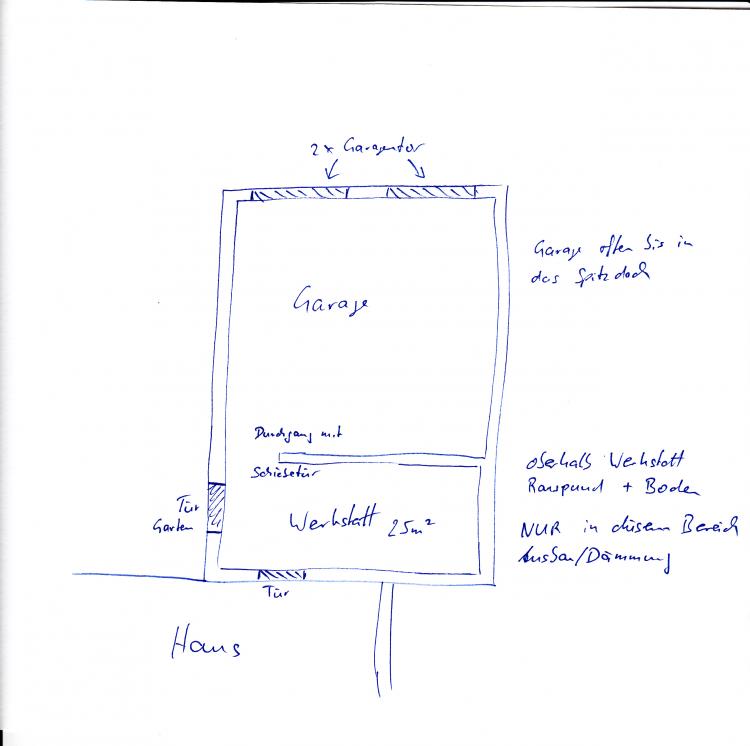 2x Garagentor
Garage offen bis in
das Spitzdach
Garage
Durchgang mit
Schiebetür
oberhalb Werkstatt
Rauspund + Boden
NUR in diesem Bereich
Ausbau/Dämmung
Tür
Garten
Werkstatt 25m²
Tür
Haus